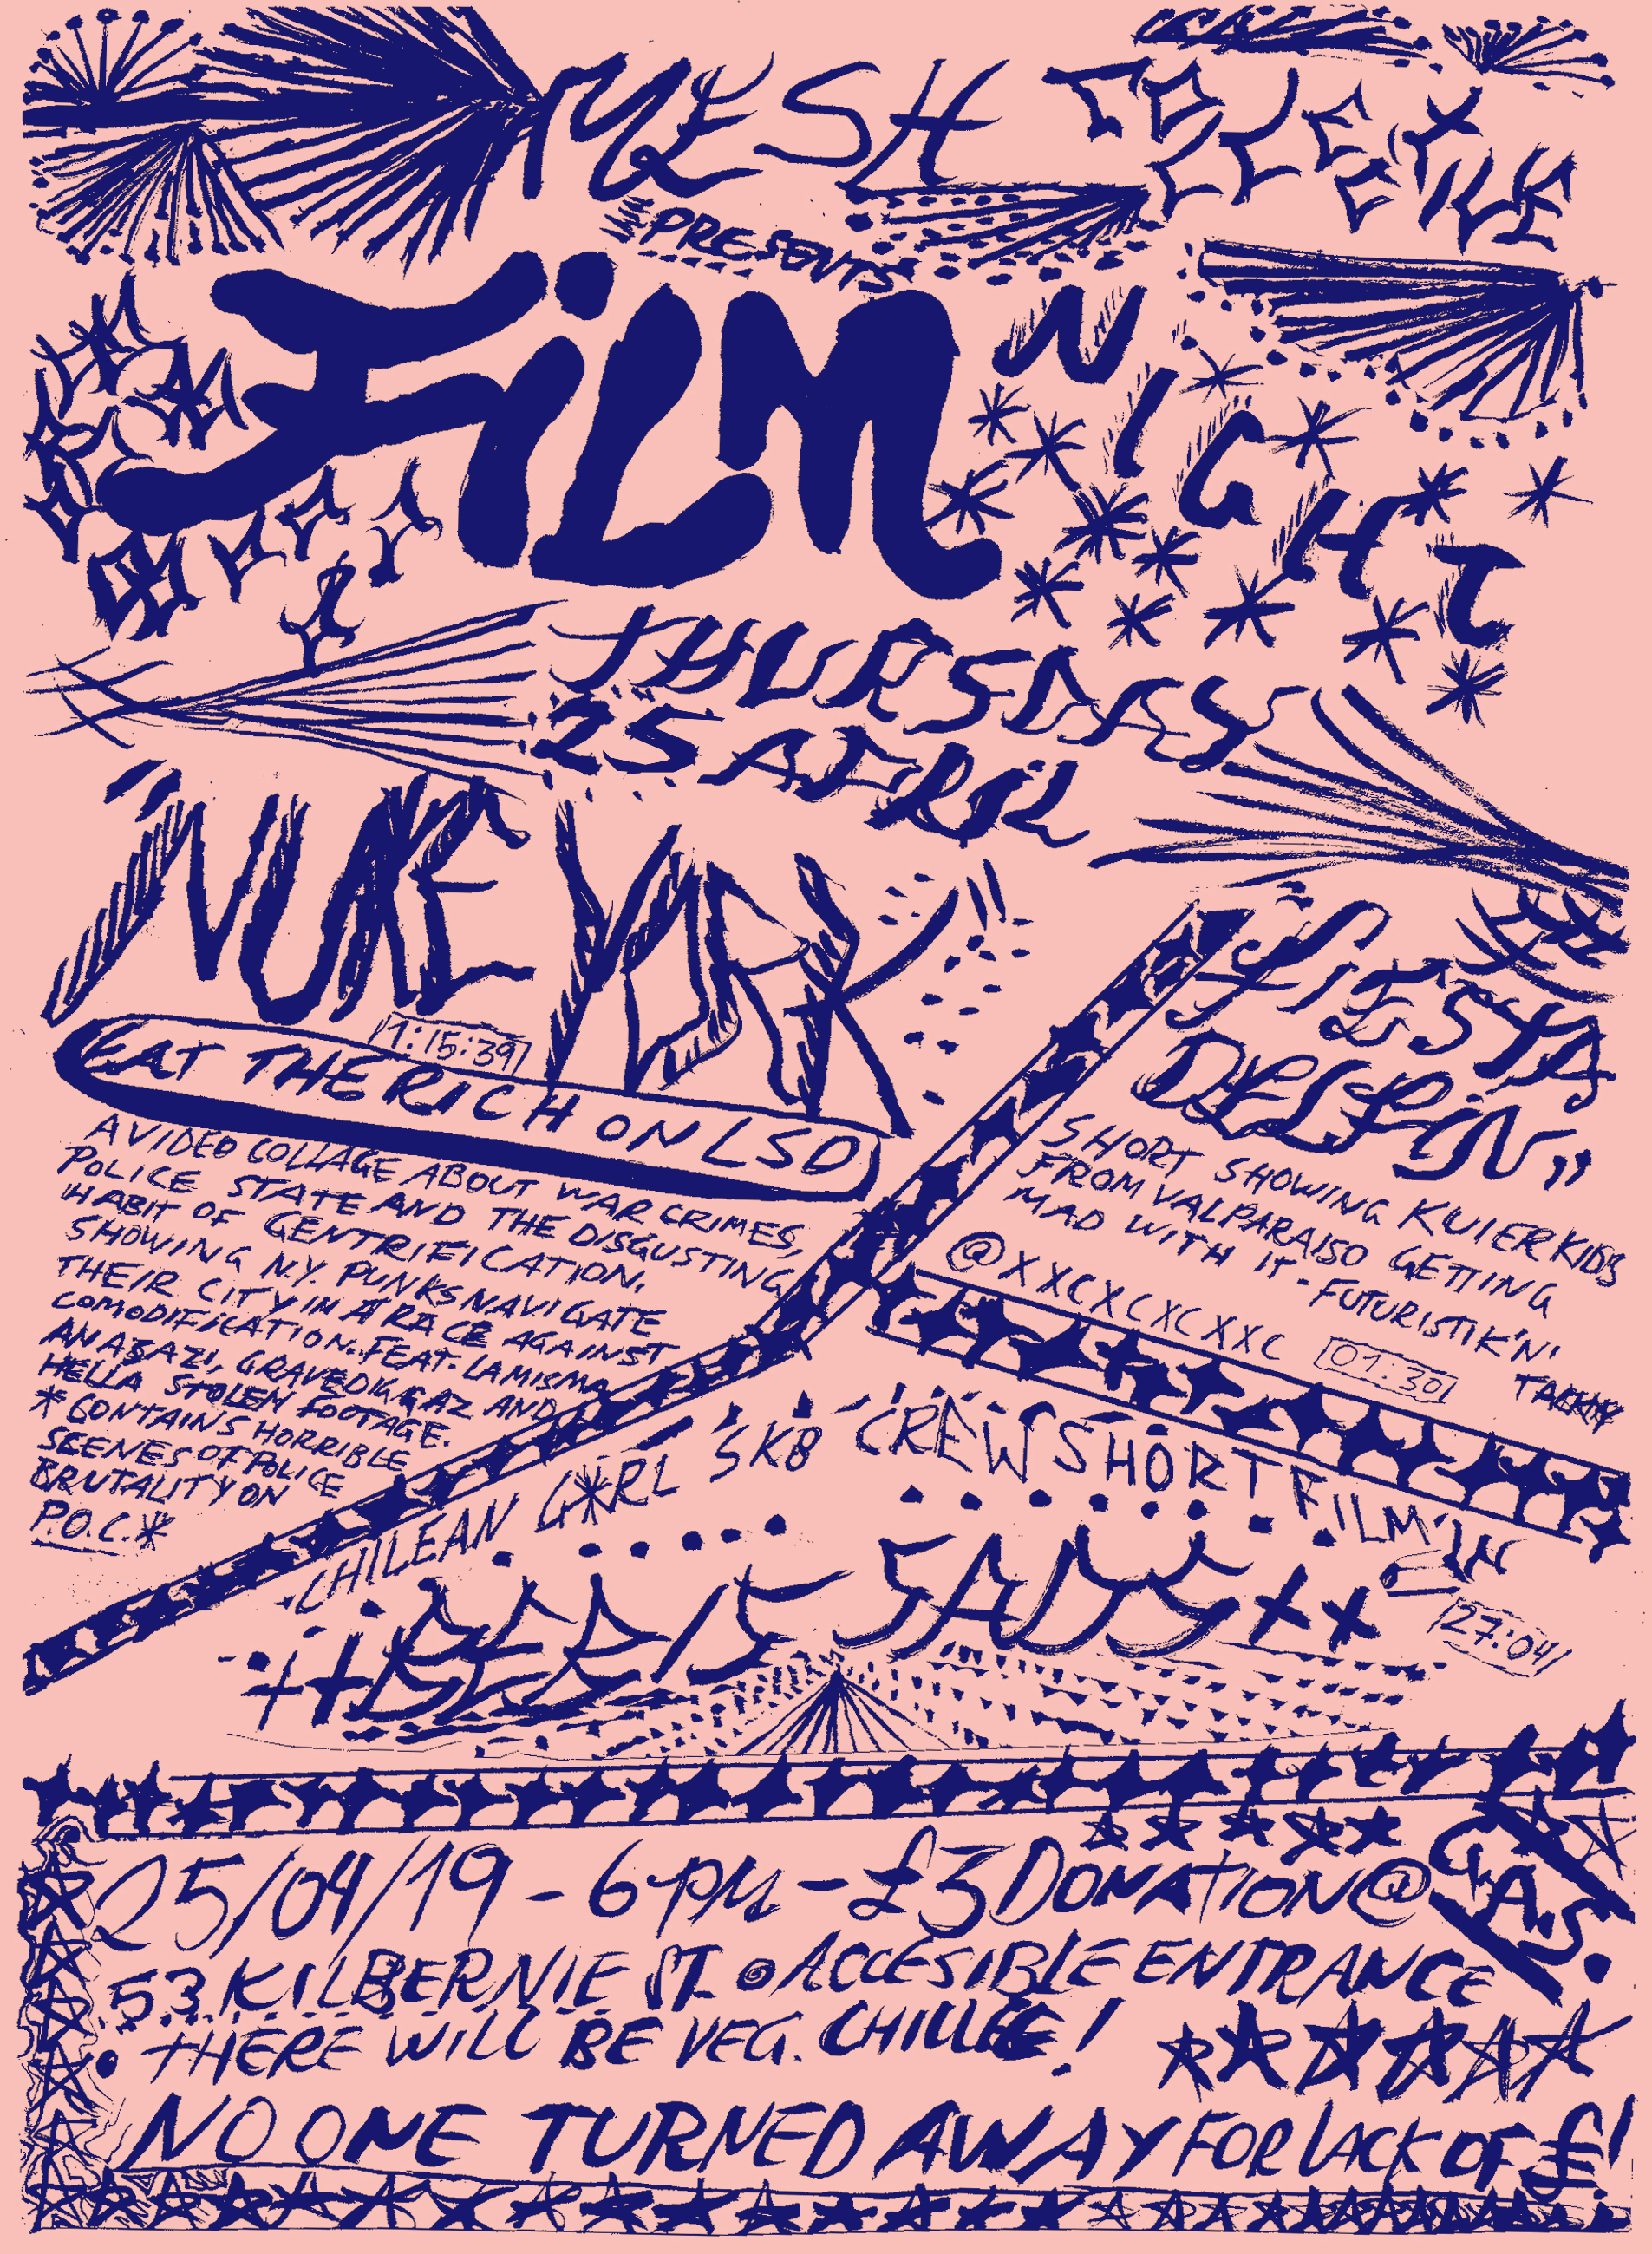 MESH COLLECTIVE
PRESENTS
FiLM NIGHT
THURSDAY
25 APRIL
"NUKE YORK"
1:15:39
EAT THE RICH ON LSD
A VIDEO COLLAGE ABOUT WAR CRIMES,
POLICE STATE AND THE DISGUSTING
HABIT OF GENTRIFICATION.
SHOWING N.Y. PUNKS NAVIGATE
THEIR CITY IN A RACE AGAINST
COMODIFICATION. FEAT. LA MISMA,
ANASAZI, GRAVEDIGGAZ AND
HELLA STOLEN FOOTAGE.
* CONTAINS HORRIBLE
SCENES OF POLICE
BRUTALITY ON
P.O.C.*
FIESTA
DELFIN"
SHORT SHOWING KUIER KIDS
FROM VALPARAISO GETTING
MAD WITH IT - FUTURISTIK'N'
@XXCXCXCXXC
01:30
CHILEAN G*RL SK8 CREW SHORT FILM
SADY xx
27:04
25/04/19 - 6PM - £3 DONATION @ G.A.S.
53 KILBERNIE ST. ACCESIBLE ENTRANCE
• THERE WILL BE VEG. CHILLEE!
NO ONE TURNED AWAY FOR LACK OF £!